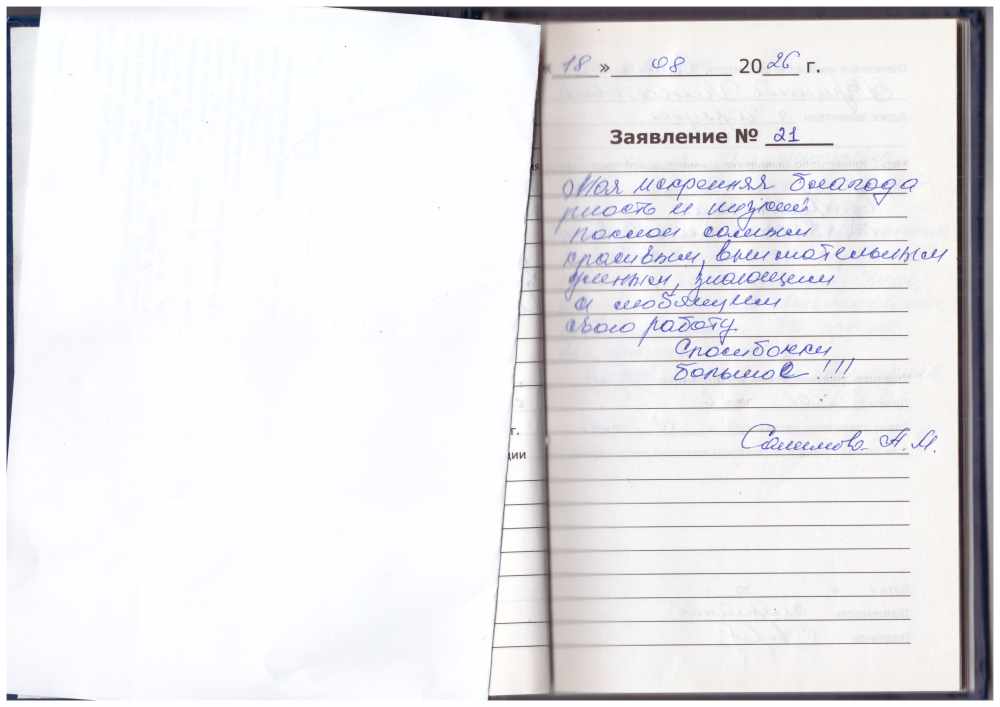 « 18 » 08 20 26 г.
Заявление № 21
Моя искренняя благода
рность и низкий
поклон самым
красивым, внимательным
умным, знающим
и любящим
свою работу.
Спасибочки
большое!!!
Салимова А.М.
г.
ции